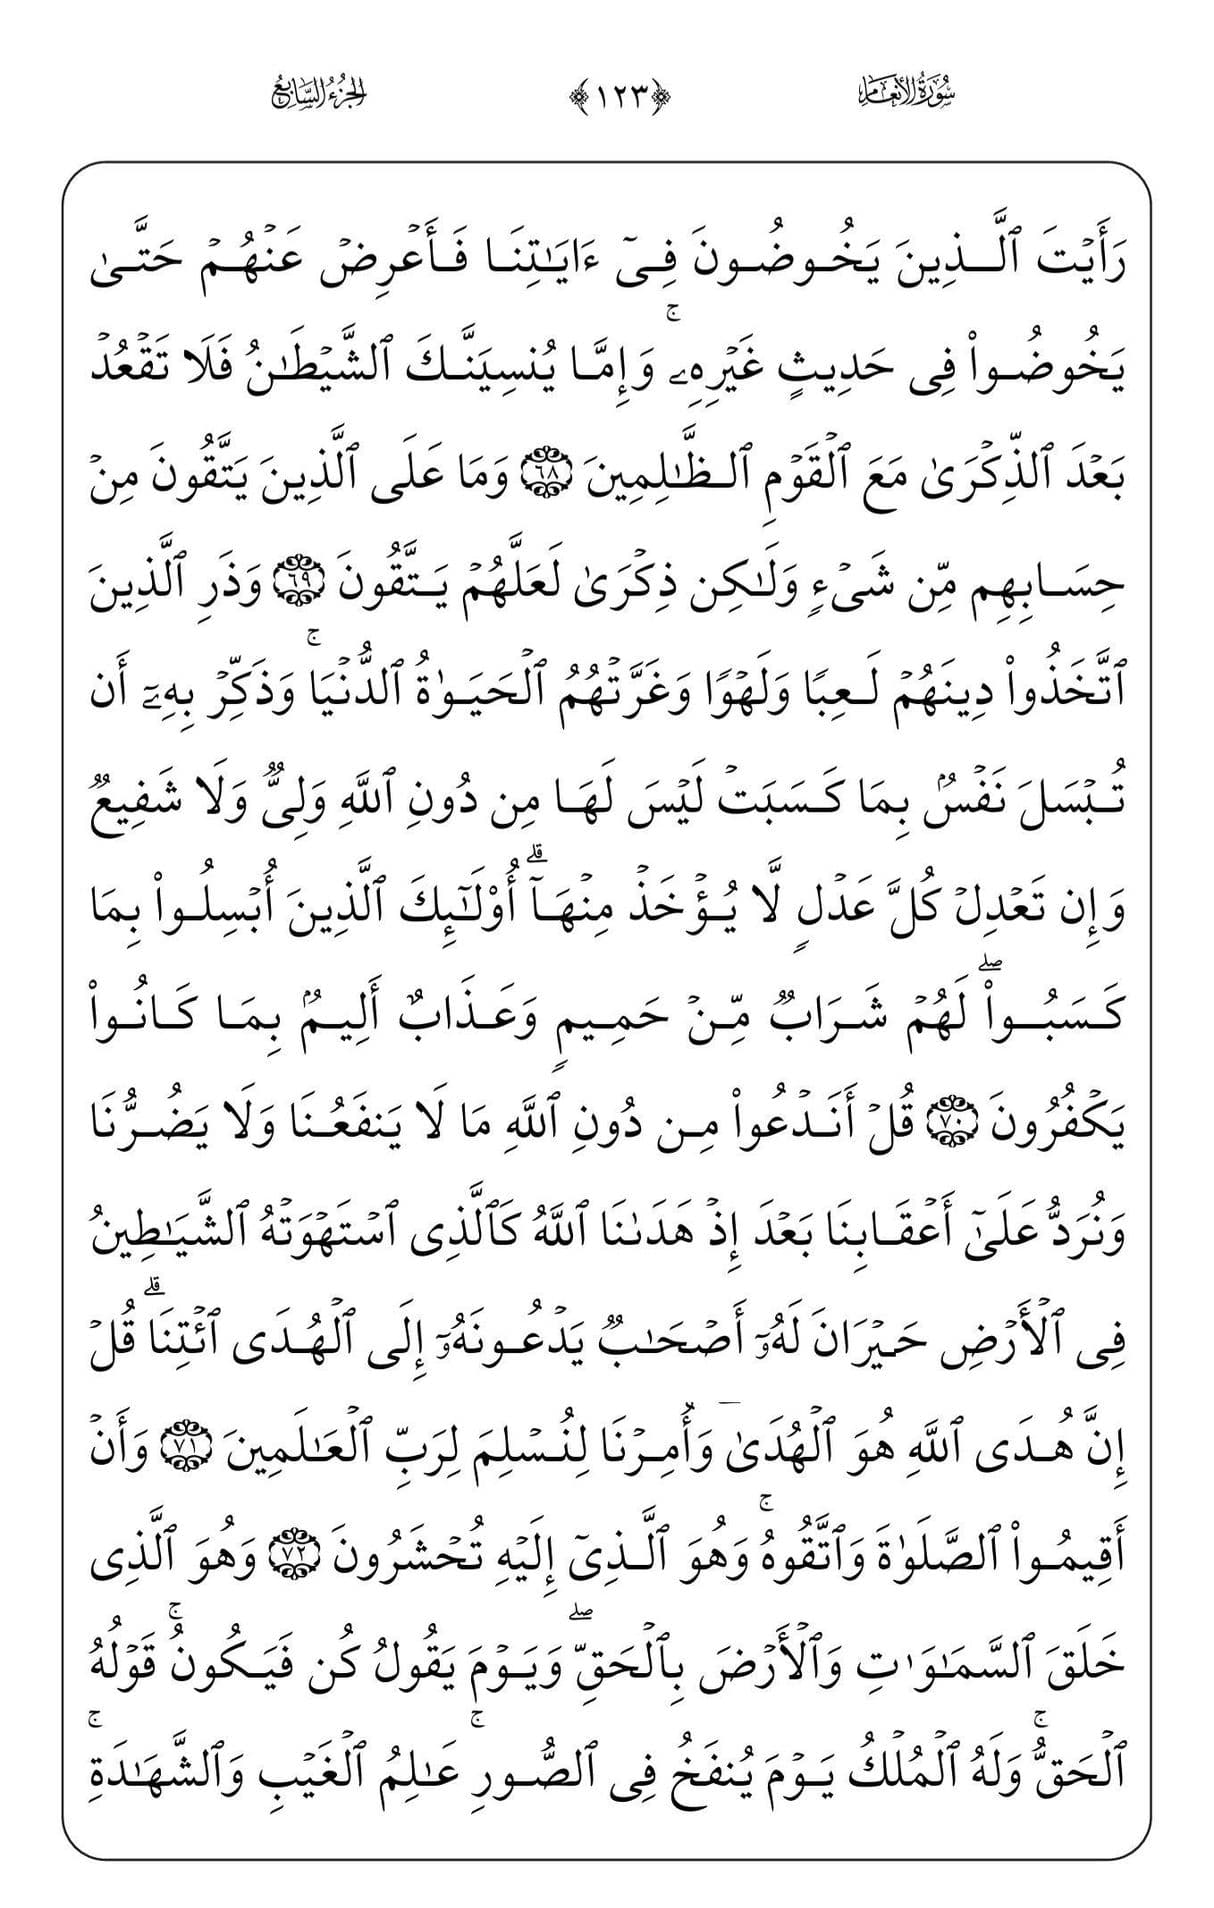 سُورَةُ الأَنعَام ﴿١٢٣﴾ الجُزْءُ السَّابِع
رَأَيۡتَ ٱلَّذِينَ يَخُوضُونَ فِيٓ ءَايَٰتِنَا فَأَعۡرِضۡ عَنۡهُمۡ حَتَّىٰ
يَخُوضُواْ فِي حَدِيثٍ غَيۡرِهِۦۚ وَإِمَّا يُنسِيَنَّكَ ٱلشَّيۡطَٰنُ فَلَا تَقۡعُدۡ
بَعۡدَ ٱلذِّكۡرَىٰ مَعَ ٱلۡقَوۡمِ ٱلظَّٰلِمِينَ ٦٨ وَمَا عَلَى ٱلَّذِينَ يَتَّقُونَ مِنۡ
حِسَابِهِم مِّن شَيۡءٍ وَلَٰكِن ذِكۡرَىٰ لَعَلَّهُمۡ يَتَّقُونَ ٦٩ وَذَرِ ٱلَّذِينَ
ٱتَّخَذُواْ دِينَهُمۡ لَعِبًا وَلَهۡوًا وَغَرَّتۡهُمُ ٱلۡحَيَوٰةُ ٱلدُّنۡيَاۚ وَذَكِّرۡ بِهِۦٓ أَن
تُبۡسَلَ نَفۡسُۢ بِمَا كَسَبَتۡ لَيۡسَ لَهَا مِن دُونِ ٱللَّهِ وَلِيٌّ وَلَا شَفِيعٌ
وَإِن تَعۡدِلۡ كُلَّ عَدۡلٍ لَّا يُؤۡخَذۡ مِنۡهَآۗ أُوْلَٰٓئِكَ ٱلَّذِينَ أُبۡسِلُواْ بِمَا
كَسَبُواْۖ لَهُمۡ شَرَابٌ مِّنۡ حَمِيمٍ وَعَذَابٌ أَلِيمُۢ بِمَا كَانُواْ
يَكۡفُرُونَ ٧٠ قُلۡ أَنَدۡعُواْ مِن دُونِ ٱللَّهِ مَا لَا يَنفَعُنَا وَلَا يَضُرُّنَا
وَنُرَدُّ عَلَىٰٓ أَعۡقَابِنَا بَعۡدَ إِذۡ هَدَىٰنَا ٱللَّهُ كَٱلَّذِي ٱسۡتَهۡوَتۡهُ ٱلشَّيَٰطِينُ
فِي ٱلۡأَرۡضِ حَيۡرَانَ لَهُۥٓ أَصۡحَٰبٌ يَدۡعُونَهُۥٓ إِلَى ٱلۡهُدَى ٱئۡتِنَاۗ قُلۡ
إِنَّ هُدَى ٱللَّهِ هُوَ ٱلۡهُدَىٰۖ وَأُمِرۡنَا لِنُسۡلِمَ لِرَبِّ ٱلۡعَٰلَمِينَ ٧١ وَأَنۡ
أَقِيمُواْ ٱلصَّلَوٰةَ وَٱتَّقُوهُۚ وَهُوَ ٱلَّذِيٓ إِلَيۡهِ تُحۡشَرُونَ ٧٢ وَهُوَ ٱلَّذِي
خَلَقَ ٱلسَّمَٰوَٰتِ وَٱلۡأَرۡضَ بِٱلۡحَقِّۖ وَيَوۡمَ يَقُولُ كُن فَيَكُونُۚ قَوۡلُهُ
ٱلۡحَقُّۚ وَلَهُ ٱلۡمُلۡكُ يَوۡمَ يُنفَخُ فِي ٱلصُّورِۚ عَٰلِمُ ٱلۡغَيۡبِ وَٱلشَّهَٰدَةِۚ